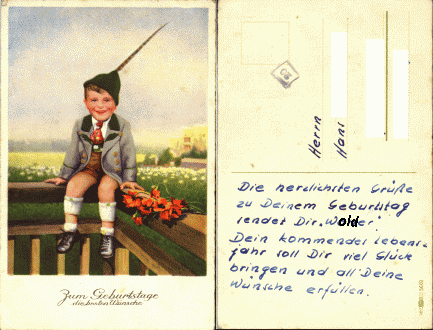 Zum Geburtstage
die besten Wünsche
Herrn
Hans
Die herzlichsten Grüße
zu Deinem Geburtstag
sendet Dir
Dein kommendes Lebens-
jahr soll Dir viel Glück
bringen und all Deine
Wünsche erfüllen.